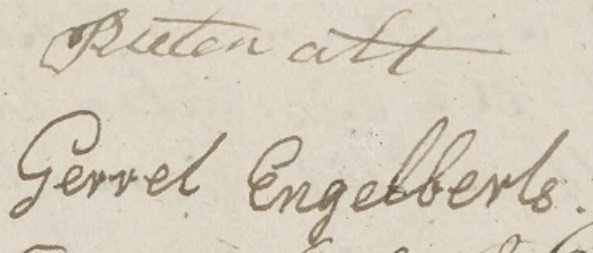 Rieten alt
Gerret Engelberts.